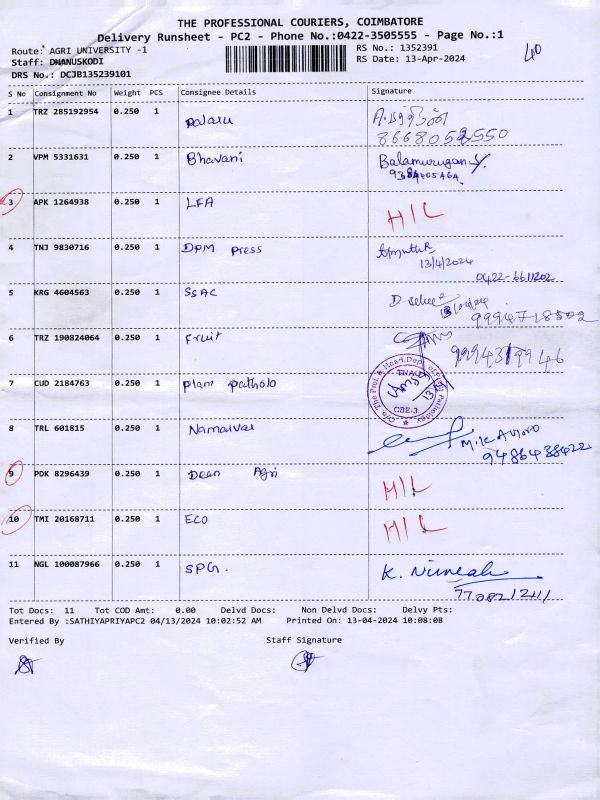 THE PROFESSIONAL COURIERS, COIMBATORE
Delivery Runsheet - PC2 - Phone No.:0422-3505555 - Page No.:1
Route: AGRI UNIVERSITY -1 RS No.: 1352391 40
Staff: DHANUSKODI RS Date: 13-Apr-2024
DRS No.: DCJB135239101
S No Consignment No Weight PCS Consignee Details Signature
1 TRZ 285192954 0.250 1
2 VPM 5331631 0.250 1 Bhavani Balamurugan
3 APK 1264938 0.250 1 LFA H/L
4 TNJ 9830716 0.250 1 DPM press
13/4/2024
0422-6611202
5 KRG 4604563 0.250 1 SSAC
9994718502
6 TRZ 190824064 0.250 1 Fruit
7 CUD 2184763 0.250 1 plant patholo
TNAU
CBE-3
8 TRL 601815 0.250 1
9486438422
9 PDK 8296439 0.250 1 Dean Agri H/L
10 TMI 20168711 0.250 1 ECO H/L
11 NGL 100087966 0.250 1 SPG. K.
Tot Docs: 11 Tot COD Amt: 0.00 Delvd Docs: Non Delvd Docs: Delvy Pts:
Entered By :SATHIYAPRIYAPC2 04/13/2024 10:02:52 AM Printed On: 13-04-2024 10:08:08
Verified By Staff Signature